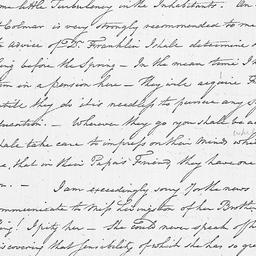 some little Turbulency in the Inhabitants. An
Colmar is very strongly recommended to me
advice of Dr. Franklin I shall determine
ing before the Spring - In the mean time I
in a pension here - they will acquire F
until they do it is needless to pursue any
ducation. - Wherever they go you shall be
shall take care to impress on their Minds wh
, that in their Papa's Friend, they have one
. - I am exceedingly sorry for the news
ommunicate to Miss Livingston of her Brothe
! I pity her - She could never speak of h
iscovering that sensibility of which she has so gre